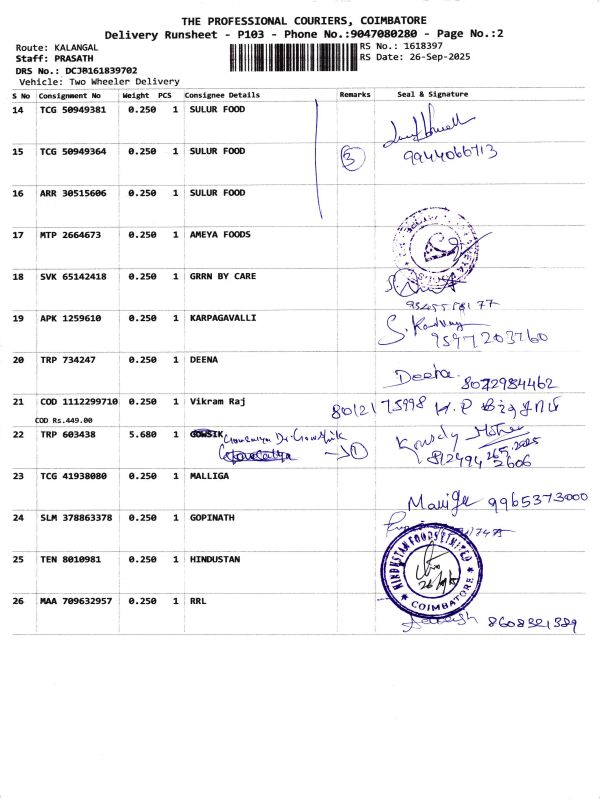 THE PROFESSIONAL COURIERS, COIMBATORE
Delivery Runsheet - P103 - Phone No.:9047080280 - Page No.:2
Route: KALANGAL
Staff: PRASATH
DRS No.: DCJB161839702
Vehicle: Two Wheeler Delivery
RS No.: 1618397
RS Date: 26-Sep-2025
S No Consignment No Weight PCS Consignee Details Remarks Seal & Signature
14 TCG 50949381 0.250 1 SULUR FOOD
15 TCG 50949364 0.250 1 SULUR FOOD 3 9944066713
16 ARR 30515606 0.250 1 SULUR FOOD
17 MTP 2664673 0.250 1 AMEYA FOODS
18 SVK 65142418 0.250 1 GRRN BY CARE
19 APK 1259610 0.250 1 KARPAGAVALLI
20 TRP 734247 0.250 1 DEENA Deena 8072984462
21 COD 1112299710 0.250 1 Vikram Raj 8012175998
COD Rs.449.00
22 TRP 603438 5.680 1 GOWSIK 1
23 TCG 41938080 0.250 1 MALLIGA 9965373000
24 SLM 378863378 0.250 1 GOPINATH
25 TEN 8010981 0.250 1 HINDUSTAN HINDUSTAN FOODS LIMITED COIMBATORE
26 MAA 709632957 0.250 1 RRL 8608321389